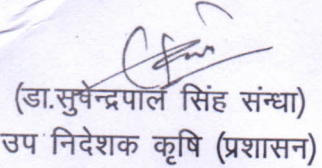 (डा.सुपेन्द्रपाल सिंह संन्धा)
उप निदेशक कृषि (प्रशासन)